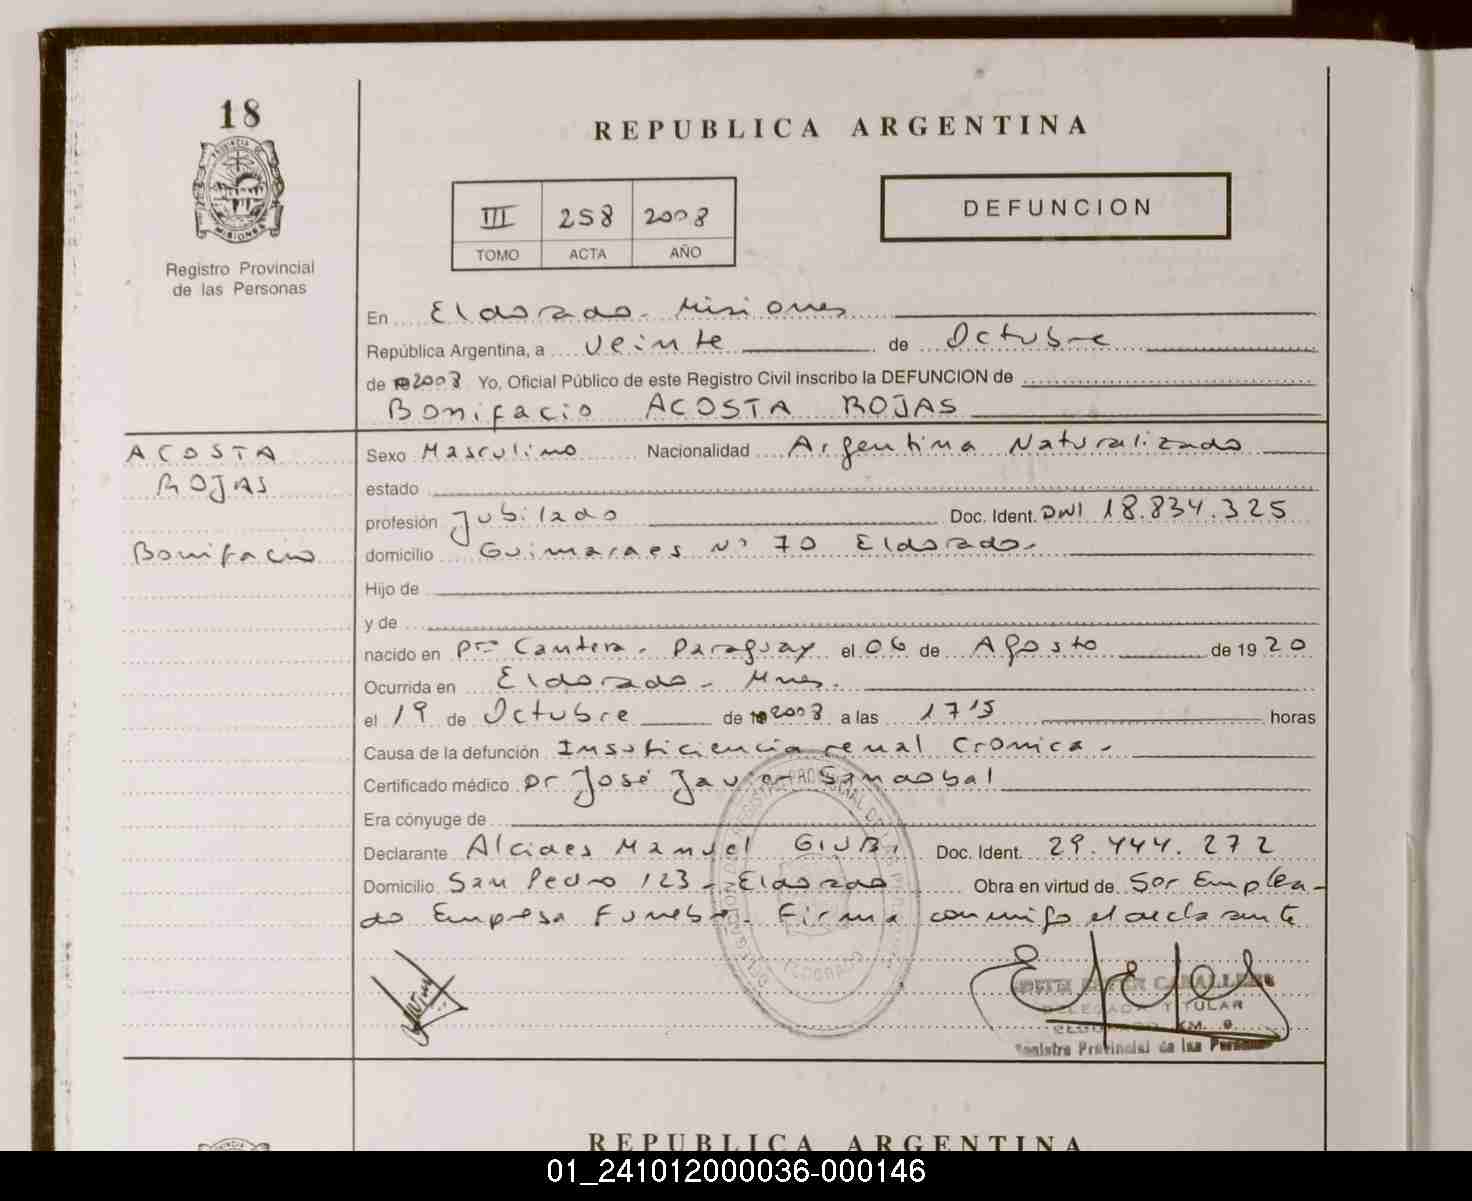 18
PROVINCIA DE
MISIONES
Registro Provincial
de las Personas
REPUBLICA ARGENTINA
III 258 2008
TOMO ACTA AÑO
DEFUNCION
En Eldorado - Misiones
República Argentina, a veinte de Octubre
de 2008 Yo, Oficial Público de este Registro Civil inscribo la DEFUNCION de
Bonifacio ACOSTA ROJAS
ACOSTA
ROJAS
Bonifacio
Sexo Masculino Nacionalidad Argentina Naturalizado
estado
profesión Jubilado Doc. Ident. DNI 18.834.325
domicilio Guimaraes Nº 70 Eldorado.
Hijo de
y de
nacido en Pto Cantera. Paraguay el 06 de Agosto de 1920
Ocurrida en Eldorado - Mnes.
el 19 de Octubre de 2008 a las 17'5 horas
Causa de la defunción Insuficiencia renal Cronica.
Certificado médico Dr José Javier Sandobal
Era cónyuge de
Declarante Alcides Manuel GIUBI Doc. Ident. 29.444.272
Domicilio San Pedro 123 - Eldorado Obra en virtud de Ser Emplea-
do Empresa Funebre. Firma conmigo el declarante
ELDORADO
CABALLERO
DELEGADA TITULAR
KM. 9
Registro Provincial de las Personas
REPUBLICA ARGENTINA
01_241012000036-000146